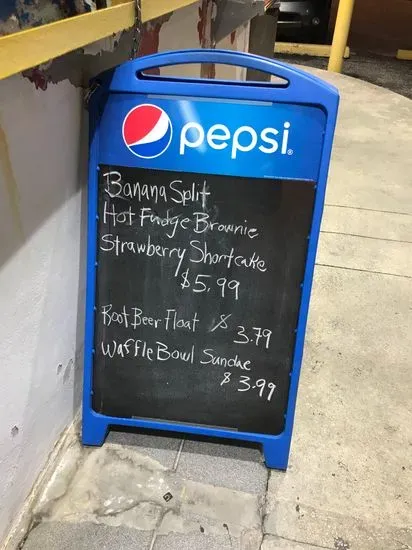 pepsi
Banana Split
Hot Fudge Brownie
Strawberry Shortcake
$5.99
Root Beer Float $ 3.79
Waffle Bowl Sundae
$ 3.99